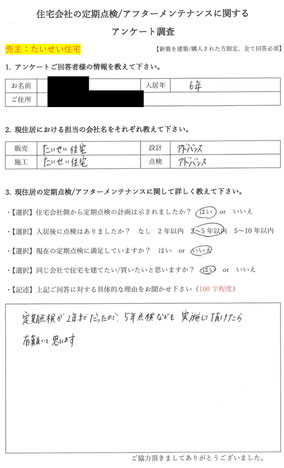 住宅会社の定期点検/アフターメンテナンスに関する
アンケート調査
売主：たいせい住宅
【新築を建築/購入された方限定、全て回答必須】
1. アンケートご回答者様の情報を教えて下さい。
お名前 入居年 6年
ご住所
2. 現住居における担当の会社名をそれぞれ教えて下さい。
販売 たいせい住宅 設計 アドバンス
施工 たいせい住宅 点検 アドバンス
3. 現住居の定期点検/アフターメンテナンスに関して詳しく教えて下さい。
・【選択】住宅会社側から定期点検の計画は示されましたか？ はい or いいえ
・【選択】入居後に点検はありましたか？ なし 2年以内 2～5年以内 5～10年以内
・【選択】現在の定期点検に満足していますか？ はい or いいえ
・【選択】同じ会社で住宅を建てたい/買いたいと思いますか？ はい or いいえ
・【記述】上記ご回答に対する具体的な理由をお聞かせ下さい（100字程度）
定期点検が2年までだったので、5年点検なども実施して頂けたら
有難いと思います
ご協力頂きましてありがとうございました。